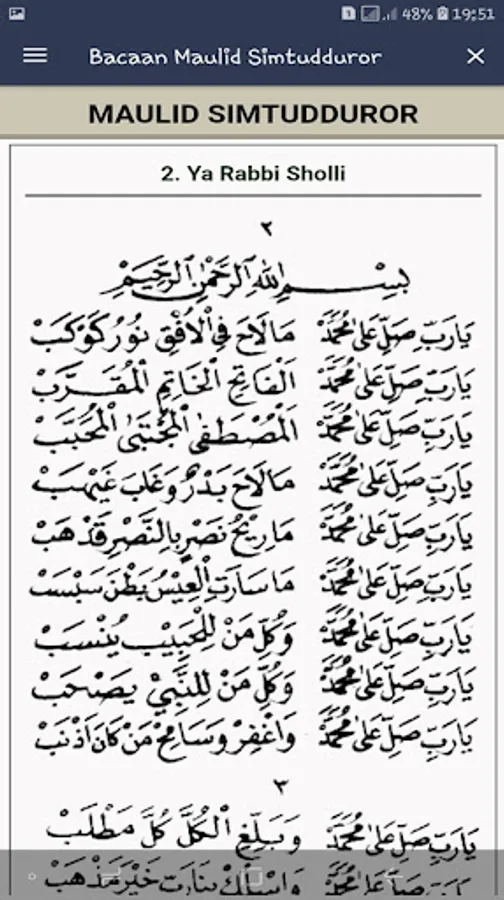 48% 19:51
Bacaan Maulid Simtudduror
MAULID SIMTUDDUROR
2. Ya Rabbi Sholli
٢
بِسْمِ اللهِ الرَّحْمٰنِ الرَّحِيْمِ
يَارَبِّ صَلِّ عَلٰى مُحَمَّدْ مَالَاحَ فِي الْاُفْقِ نُوْرُ كَوْكَبْ
يَارَبِّ صَلِّ عَلٰى مُحَمَّدْ اَلْفَاتِحِ الْخَاتِمِ الْمُقَرَّبْ
يَارَبِّ صَلِّ عَلٰى مُحَمَّدْ اَلْمُصْطَفَى الْمُجْتَبَى الْمُحَبَّبْ
يَارَبِّ صَلِّ عَلٰى مُحَمَّدْ مَالَاحَ بَدْرٌ وَغَابَ غَيْهَبْ
يَارَبِّ صَلِّ عَلٰى مُحَمَّدْ مَارِيْحُ نَصْرٍ بِالنَّصْرِ قَدْ هَبْ
يَارَبِّ صَلِّ عَلٰى مُحَمَّدْ مَاسَارَتِ الْعِيْسُ بَطْنَ سَبْسَبْ
يَارَبِّ صَلِّ عَلٰى مُحَمَّدْ وَكُلِّ مَنْ لِلْحَبِيْبِ يُنْسَبْ
يَارَبِّ صَلِّ عَلٰى مُحَمَّدْ وَكُلِّ مَنْ لِلنَّبِيْ يَصْحَبْ
يَارَبِّ صَلِّ عَلٰى مُحَمَّدْ وَاغْفِرْ وَسَامِحْ مَنْ كَانَ اَذْنَبْ
٣
يَارَبِّ صَلِّ عَلٰى مُحَمَّدْ وَبَلِّغِ الْكُلَّ كُلَّ مَطْلَبْ
يَارَبِّ صَلِّ عَلٰى مُحَمَّدْ وَاسْلُكْ بِنَا رَبِّ خَيْرَ مَذْهَبْ